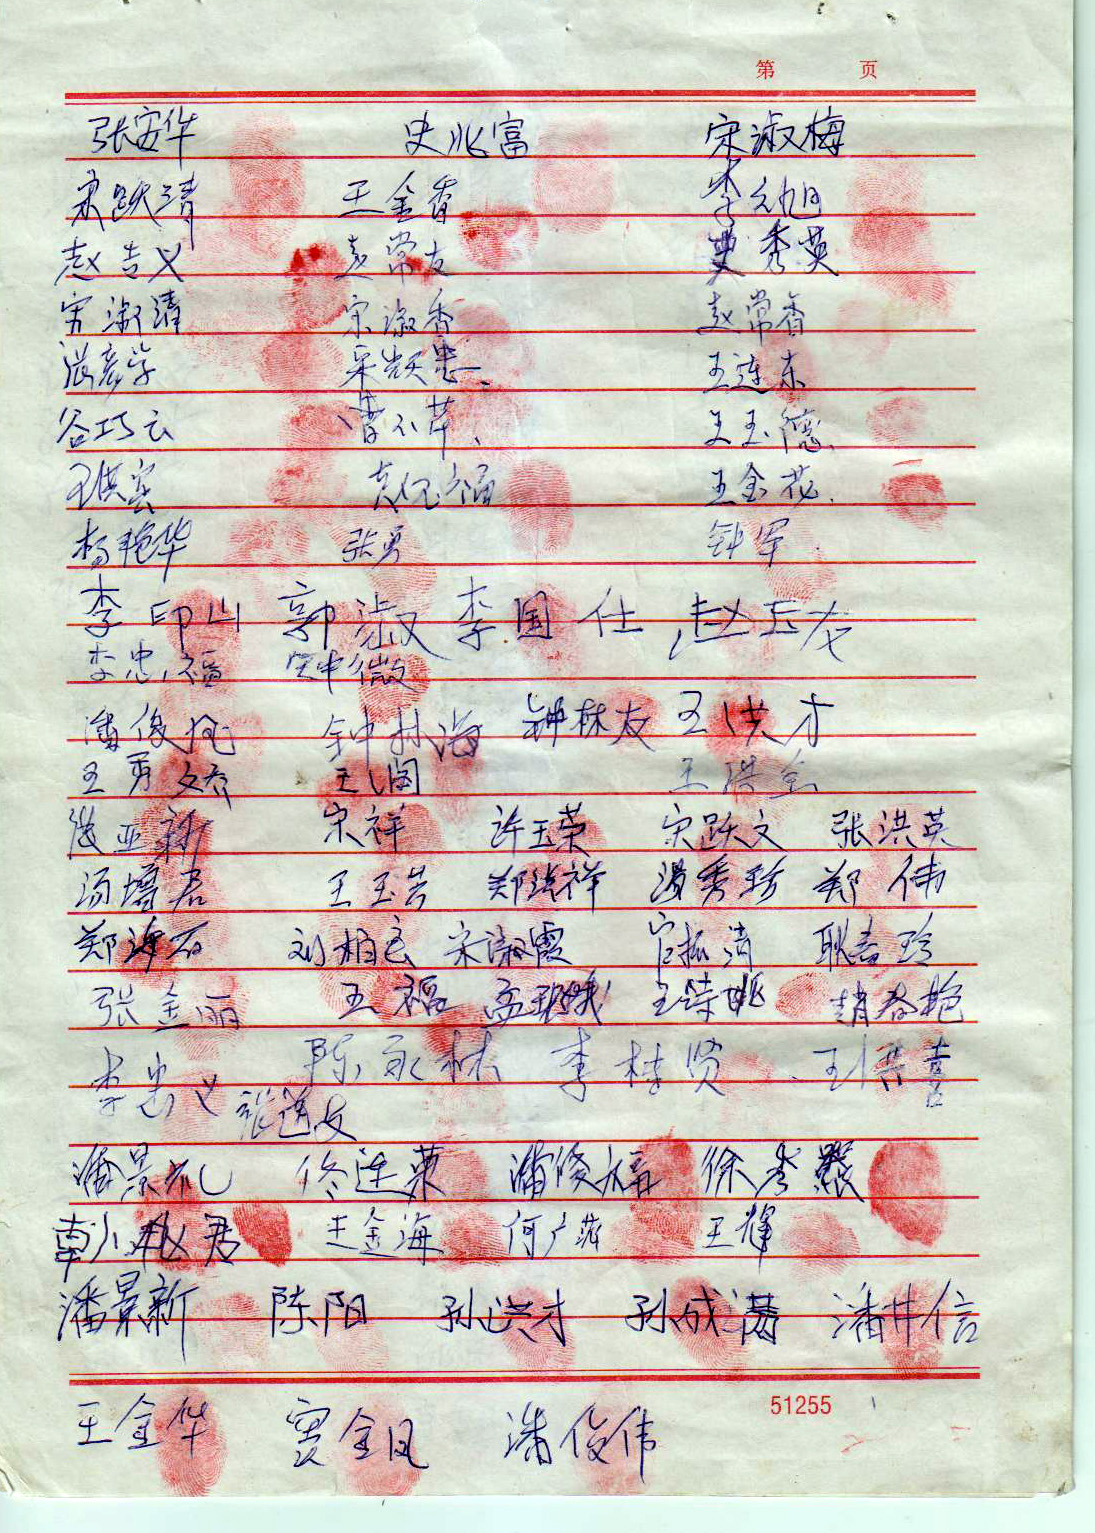 第 页
张安华 史兆富 宋淑梅
宋跃清 王金香 李元旭
赵吉义 赵常友 史秀英
宋淑清 宋淑香 赵常香
张彦学 宋贤忠 王连东
谷巧云 曹小芹 王玉德
王洪宾 福 王金花
杨艳华 张勇 钟军
李印山 郭淑 李国仕 赵玉友
李忠福 微
潘俊 钟林海 钟林友 王洪才
王勇 王闯 王洪金
张亚新 宋祥 许玉荣 宋跃文 张洪英
汤增君 王玉芳 郑洪祥 汤秀珍 郑伟
郑海石 刘柏 宋淑霞 官振清 耿春玲
张金丽 王福 孟 王 赵春艳
李忠义 陈永林 李桂贤 王洪喜
张道友
潘景礼 佟连荣 潘俊福 徐秀
王金海 何广萍 王辉
潘景新 陈阳 孙洪才 孙成满 潘井信
51255
王金华 贾金凤 潘俊伟